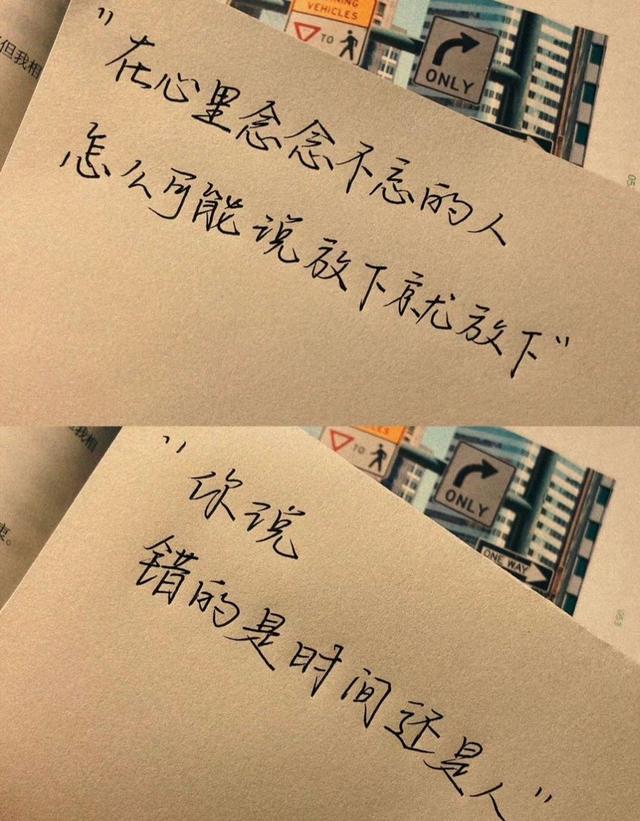 但我相
VEHICLES
TO
ONLY
"在心里念念不忘的人
怎么可能说放下就放下"
05
我相
TO
ONLY
ONE WAY
"你说
错的是时间还是人"